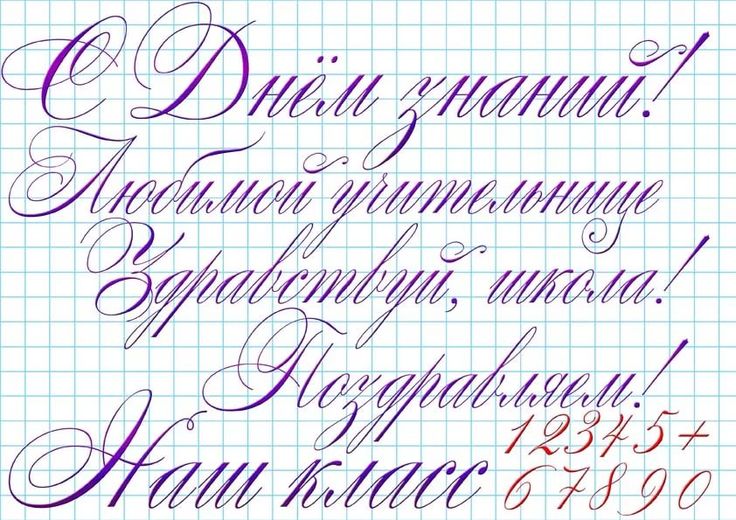 С Днём знаний!
Любимой учительнице
Здравствуй, школа!
Поздравляем!
Наш класс
12345+
67890